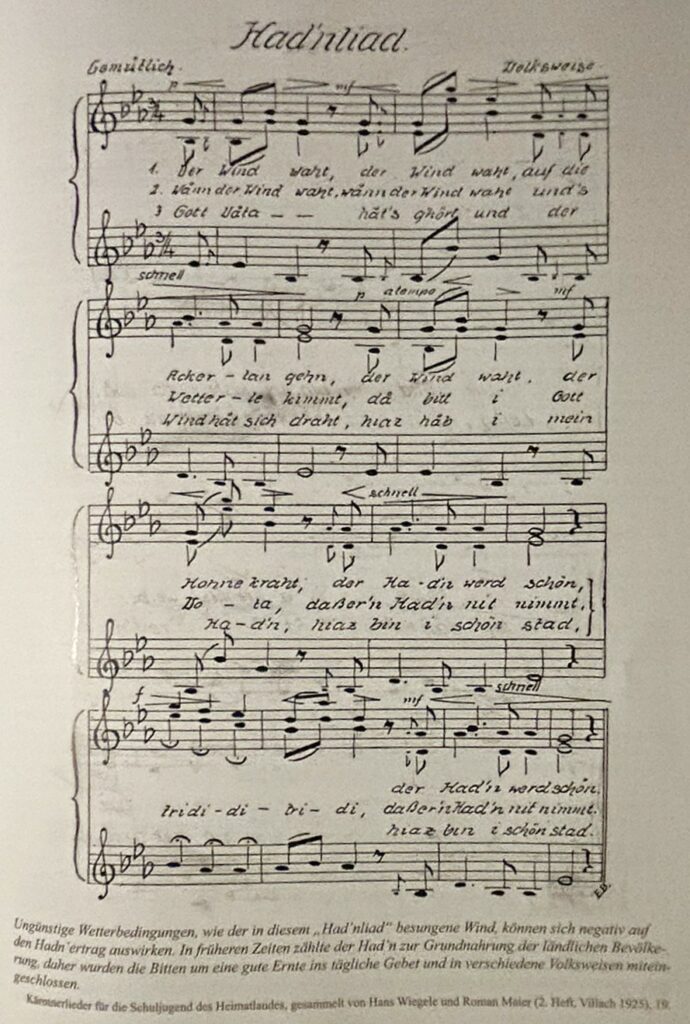 Had'nliad.
Gemütlich.
Volksweise
p
mf
1. Der Wind waht, der Wind waht, auf die
2. Wånn der Wind waht, wånn der Wind waht und's
3 Gott Våta – – håt's ghört und der
schnell
p a tempo
mf
Acker – lan gehn, der Wind waht, der
Wetter – le kimmt, då bitt i Gott
Wind håt sich draht, hiaz håb i mein
schnell
Honne kraht, der Ha – d'n werd schön,
Vo – ta, daßer'n Had'n nit nimmt,
Ha – d'n, hiaz bin i schön stad,
f
mf
schnell
der Had'n werd schön.
tridi – di – tri – di, daßer'n Had'n nit nimmt.
hiaz bin i schön stad.
E.B.
Ungünstige Wetterbedingungen, wie der in diesem „Had'nliad" besungene Wind, können sich negativ auf
den Hadn'ertrag auswirken. In früheren Zeiten zählte der Had'n zur Grundnahrung der ländlichen Bevölke-
rung, daher wurden die Bitten um eine gute Ernte ins tägliche Gebet und in verschiedene Volksweisen mitein-
geschlossen.
Kärntnerlieder für die Schuljugend des Heimatlandes, gesammelt von Hans Wiegele und Roman Maier (2. Heft, Villach 1925), 19.